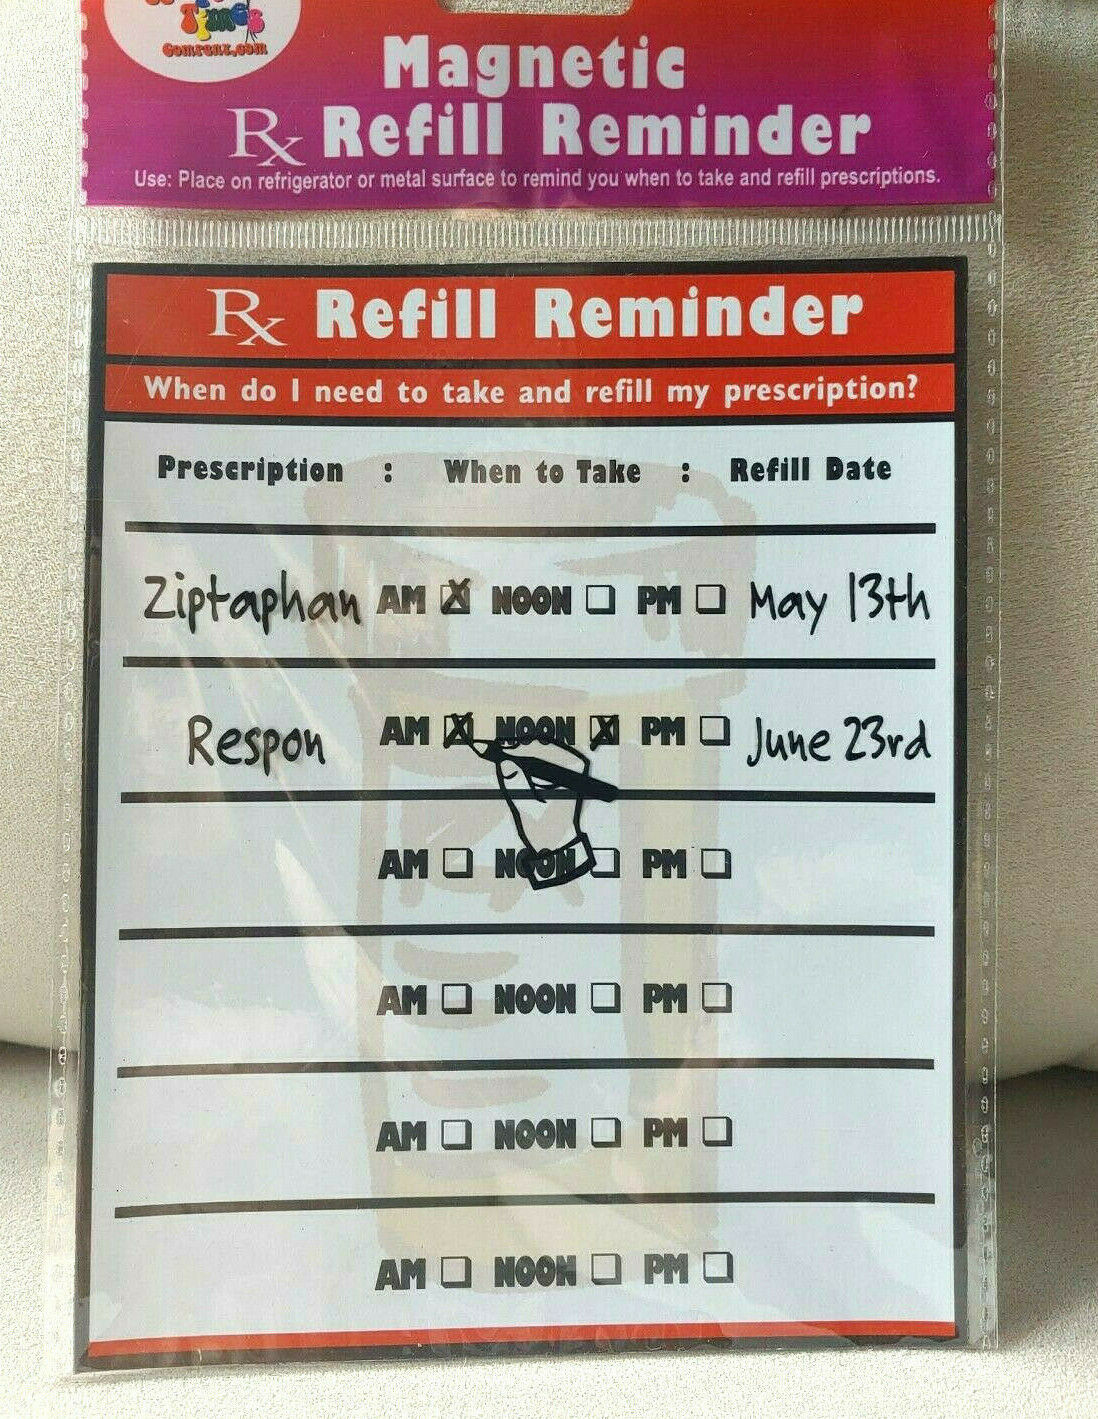 Times
Magnetic
Rx Refill Reminder
Use: Place on refrigerator or metal surface to remind you when to take and refill prescriptions.
Rx Refill Reminder
When do I need to take and refill my prescription?
Prescription : When to Take : Refill Date
Ziptaphan AM NOON PM May 13th
Respon AM NOON PM June 23rd
AM NOON PM
AM NOON PM
AM NOON PM
AM NOON PM